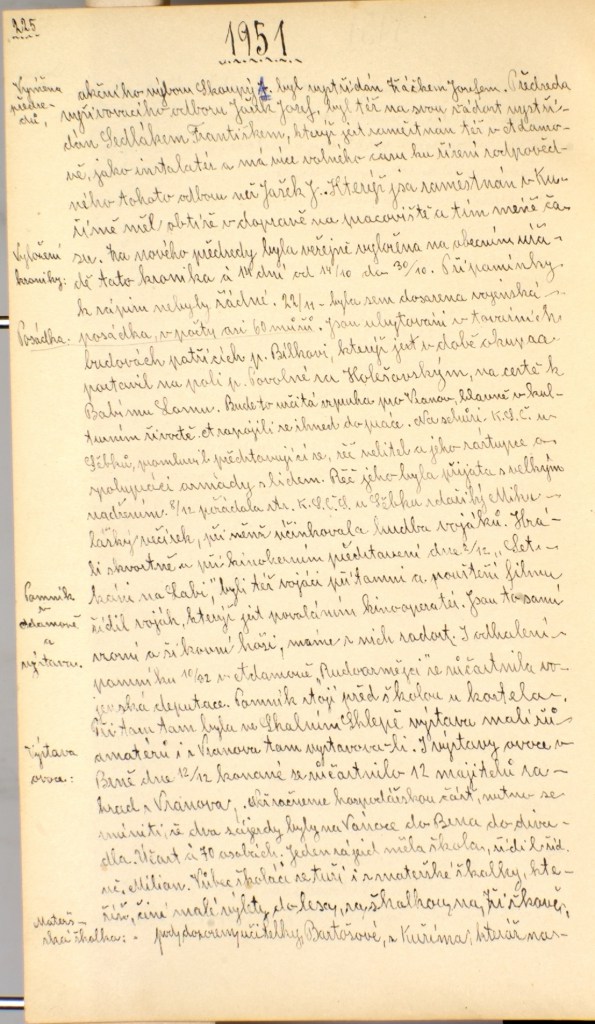 225
1951
Výměna
předse-
dů,
akčního výboru Skoupý F. byl vystřídán Fráčkem Josefem. Předseda
vyživovacího odboru Jašek Josef, byl též na svou žádost vystří-
dán Sedlákem Františkem, kterýž jest zaměstnán též v Adamo-
vě, jako instalatér a má více volného času ku řízení zodpověd-
ného tohoto odboru než Jašek J.. Kterýž jsa zaměstnán v Ku-
římě měl obtíže v dopravě na pracoviště a tím méně ča-
su. Za nového předsedy byla veřejně vyložena na obecním úřa-
Vyložení
kroniky:
dě tato kronika á 14 dní od 14/10 do 30/10. Připomínky
k zápisu nebyly žádné. 22/11 - byla sem dosazena vojenská
Posádka.
posádka, v počtu asi 60 mužů. Jsou ubytováni v továrních
budovách patřících p. Bílkovi, kterýž jest v době okupace
postavil na poli p. Povolné za Holešovským, na cestě k
Babímu Lomu. Bude to určitá vzpruha pro Vranov, hlavně v kul-
turním životě. A zapojili se ihned do práce. Na schůzi K.S.Č. u
Sébků, promluvil představující se, řeč velitel a jeho zástupce o
spolupráci armády s lidem. Řeč jeho byla přijata s velkým
nadšením. 8/12 pořádala str. K.S.Č.S. u Sébků zdařilý Miku-
lášský večírek, při němž účinkovala hudba vojáků. Hrá-
li skvostně a při kinoherním představení dne 2/12 „Set-
kání na Labi" byli též vojáci přítomni a pouštění filmu
Pomník
v
Adamově
a
výstava.
řídil voják, kterýž jest povoláním kinooperatér. Jsou to samí
vzorní a šikovní hoši, máme z nich radost. I odhalení
pomníku 10/12 v Adamově „Rudoarmějci" se zúčastnila vo-
jenská deputace. Pomník stojí před školou u kostela.
Při tom tam byla ve Skalním Sklepě výstava malířů
amatérů i z Vranova tam vystavova-li. I výstavy ovoce v
Výstava
ovoce:
Brně dne 12/12 konané se zúčastnilo 12 majitelů za-
hrad z Vranova, Než začneme hospodářskou část, nutno se
zmíniti, že dva zájezdy byly na Vánoce do Brna do diva-
dla. Účast á 70 osobách. Jeden zájezd měla škola, řídil říd.
uč. Milian. Vůbec školáci se tuží i z mateřské školky, kte-
říž, činí malé výlety, do lesa, za, školkou, na, Jříškově,
Mateř-
ská školka:
pod, dozorem, učitelky, Bartošové, z Kuřima; kteráž nas-